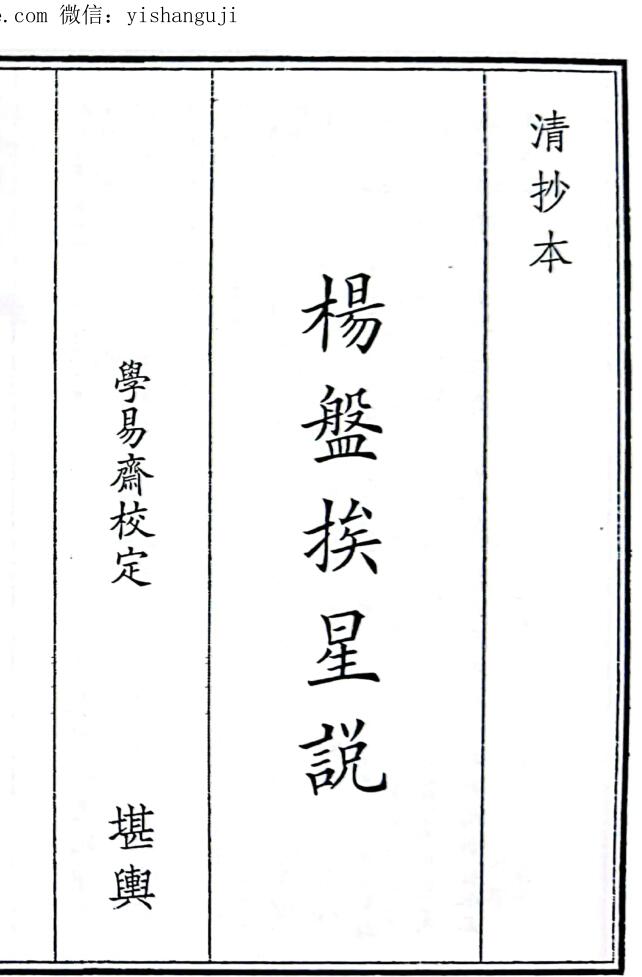 e.com 微信：yishanguji
清抄本
楊盤挨星説
學易齋校定
堪輿